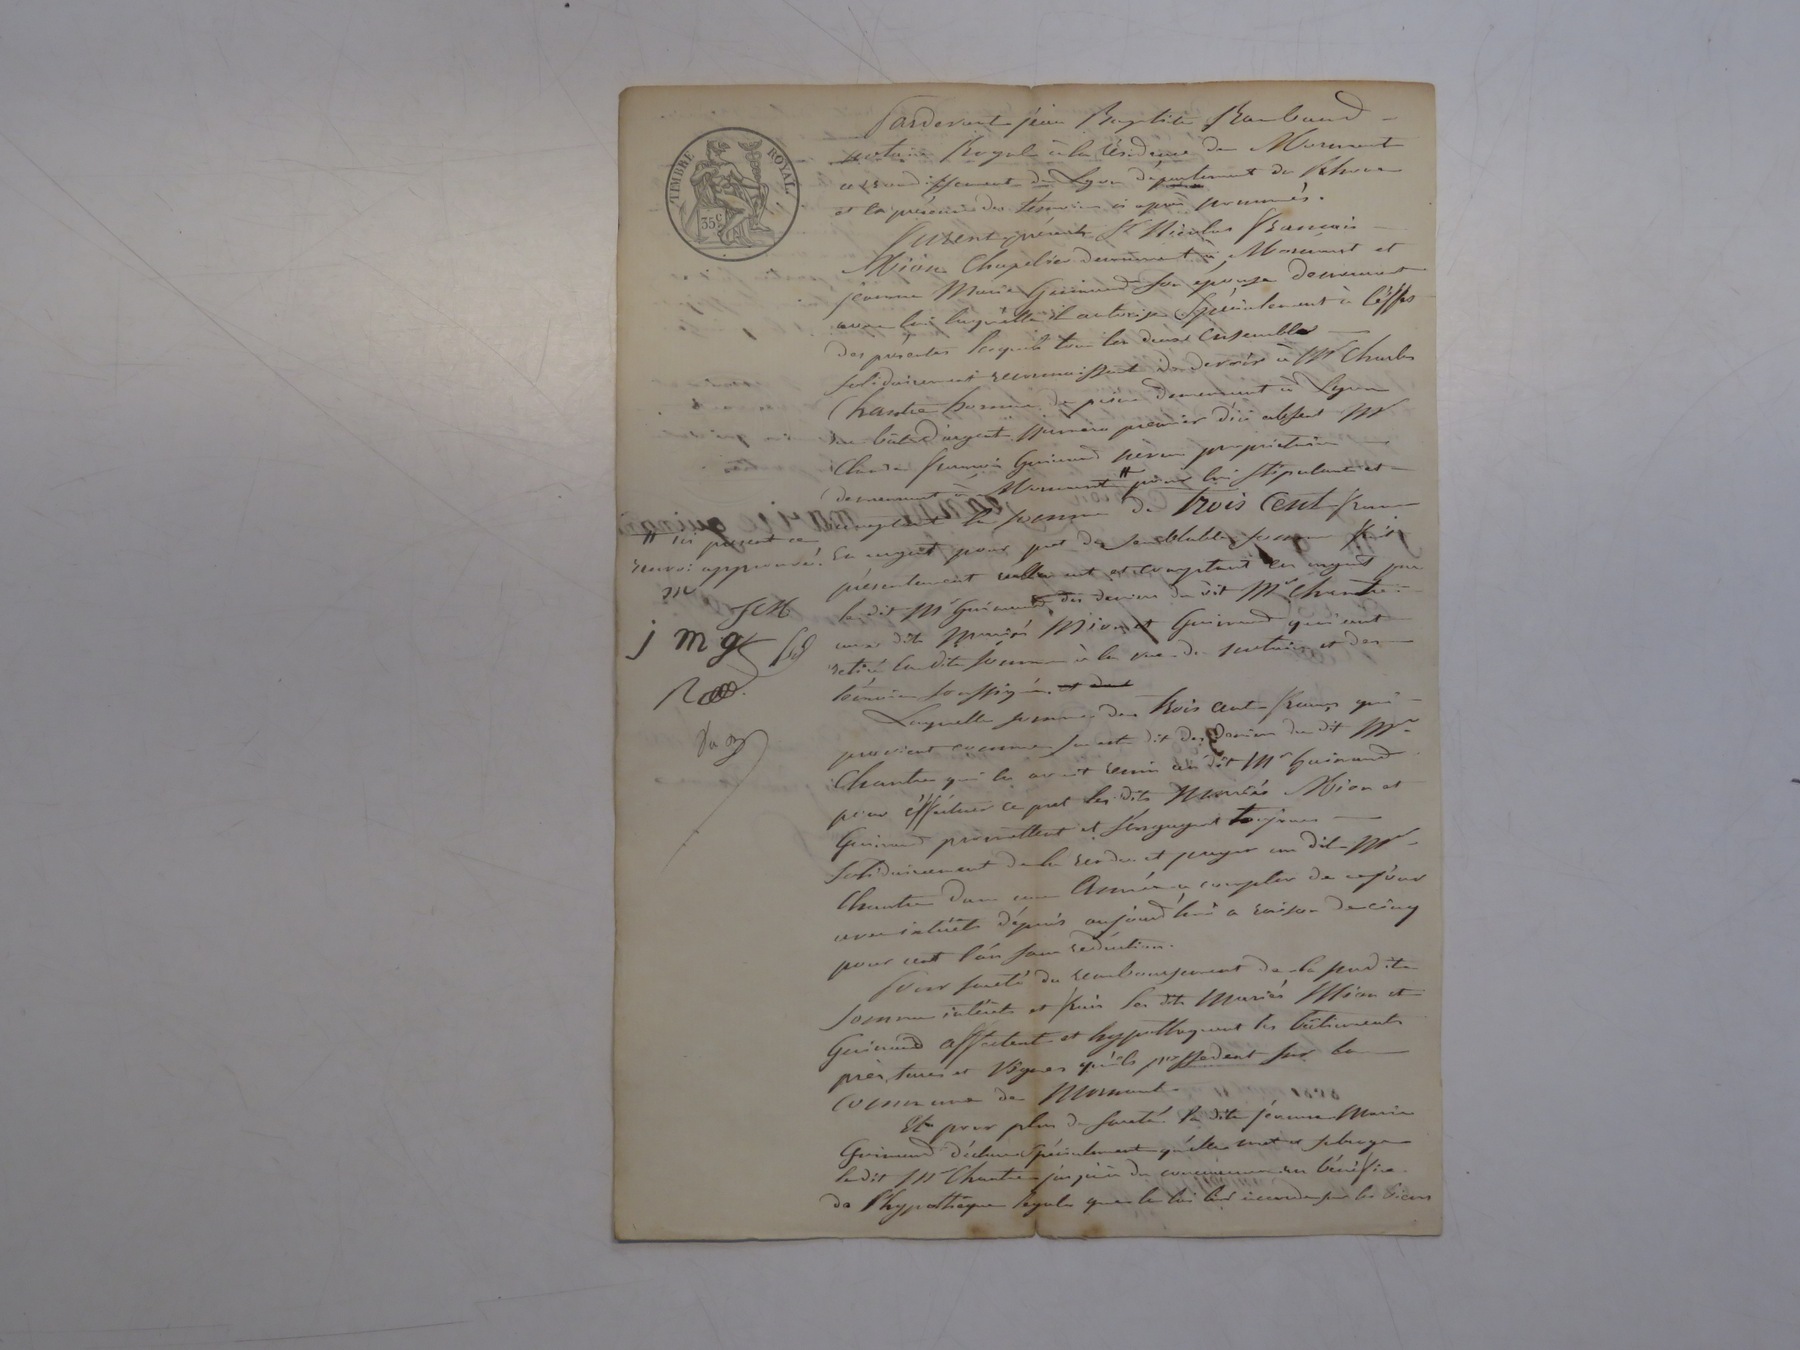 TIMBRE ROYAL
35 c
Pardevant jean Baptiste Rambaud
notaire Royal à la résidence de Mornant
arrondissement de Lyon département du Rhône
et la présence des témoins ci après nommés.
Furent présents Sr Nicolas François
Mion Chapelier demeurant à Mornant et
jeanne Marie Guinand son épouse demeurant
avec lui laquelle il autorise spécialement à l'effet
des présentes lesquels tous les deux ensemble
solidairement reconnaissent devoir à Mr Charles
Chantre demeurant à Lyon
numéro premier d'ici absent Mr
Claude François Guinand propriétaire
demeurant à Mornant # pour lui stipulant et
acceptant la somme de trois cent francs
# ici présent ce
renvoi approuvé.
j m g
en argent pour pret de semblable somme fait
présentement réellement et comptant en argent par
le dit Mr Guinand des deniers du dit Mr Chantre
aux dits Mariés Mion et Guinand qui ont
retiré la dite somme à la vue du notaire et des
témoins soussignés et dont
Laquelle somme de trois cent francs qui
provient comme sus est dit des deniers du dit Mr
Chantre qui les avait remis au dit Mr Guinand
pour éffectuer ce pret les dits Mariés Mion et
Guinand promettent et s'engagent toujours
solidairement de la rendre et payer au dit Mr
Chantre dans une Année a compter de ce jour
avec intérêts dépuis aujourd'hui a raison de cinq
pour cent l'an sans réduction.
Pour sureté du remboursement de la susdite
somme intérêts et frais les dits Mariés Mion et
Guinand affectent et hypothequent les bâtiments
près, terres et Vignes qu'ils possedent sur la
commune de Mornant.
Et pour plus de sureté la dite jeanne Marie
Guinand déclare spécialement qu'elle met et subroge
le dit Mr Chantre jusqu'à due concurrence au bénéfice
de l'hypothèque légale que la loi lui accorde sur les biens